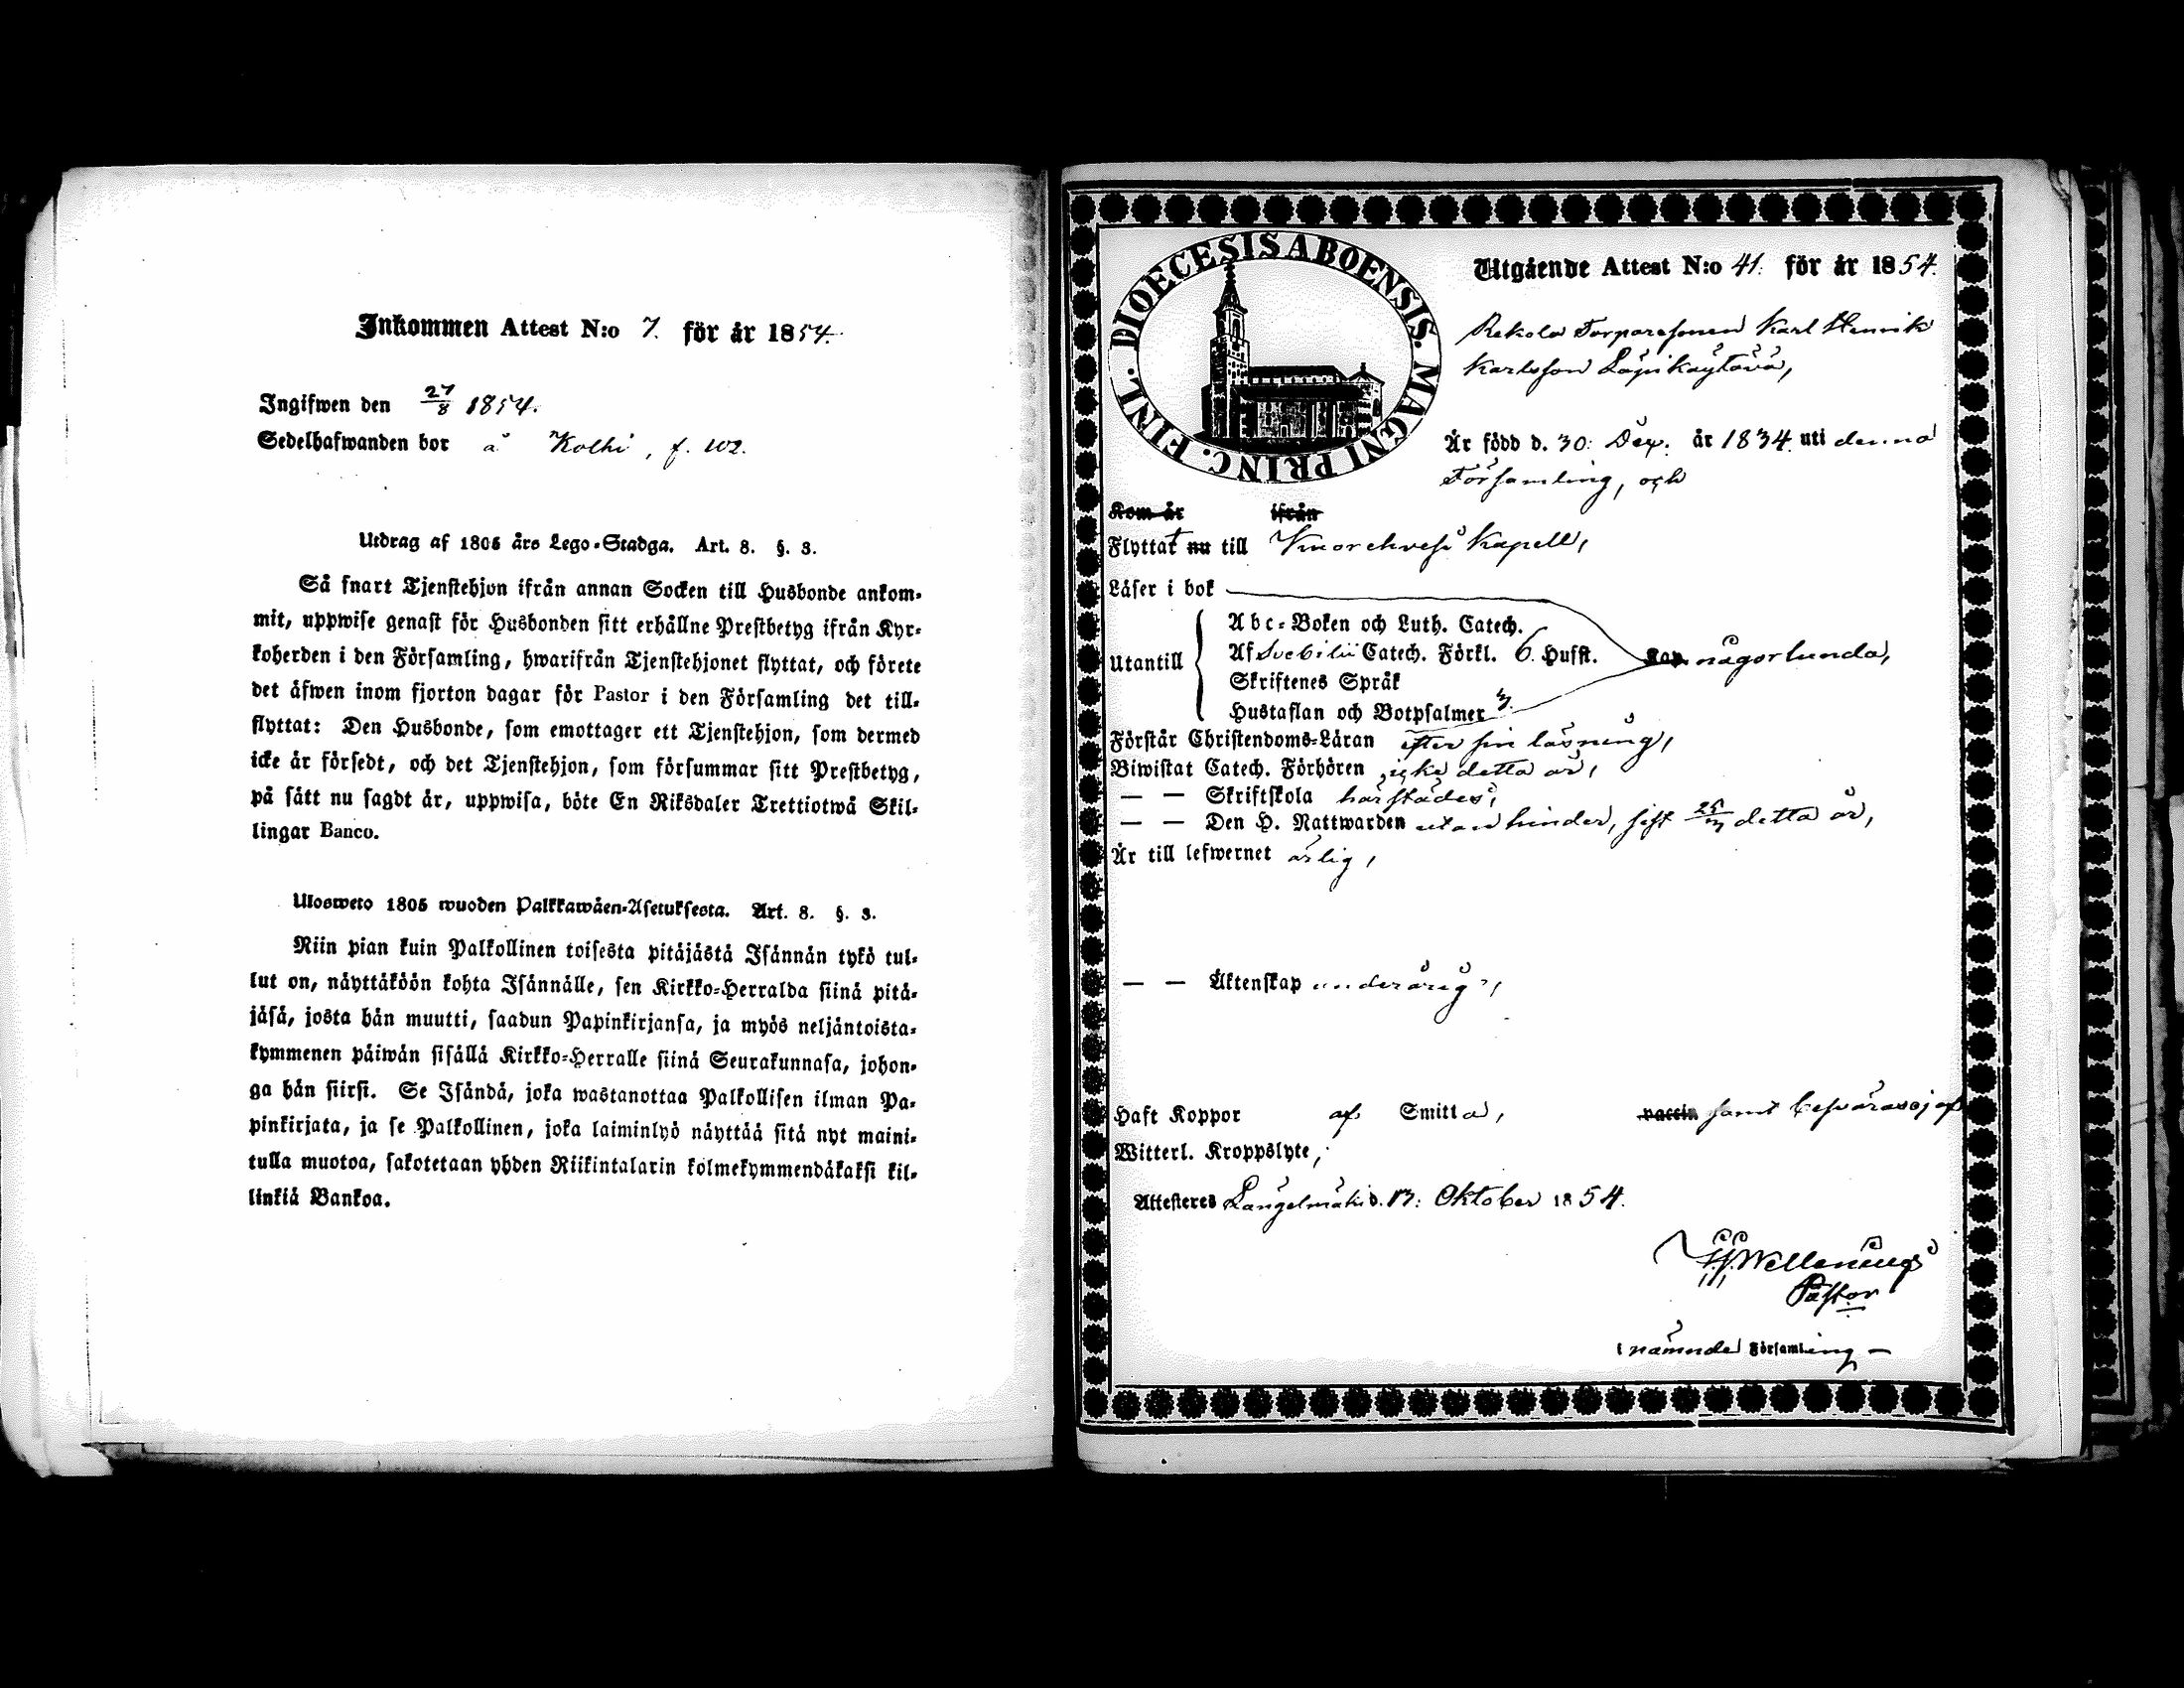 Inkommen Attest N:o 7. för år 1854.
Ingifwen den 27/8 1854.
Sedelhafwanden bor å Kolhi, f. 102.
Utdrag af 1805 års Lego-Stadga. Art. 8. §. 3.
Så snart Tjenstehjon ifrån annan Socken till Husbonde ankom-
mit, uppwise genast för Husbonden sitt erhållne Prestbetyg ifrån Kyr-
koherden i den Församling, hwarifrån Tjenstehjonet flyttat, och förete
det äfwen inom fjorton dagar för Pastor i den Församling det till-
flyttat: Den Husbonde, som emottager ett Tjenstehjon, som dermed
icke är försedt, och det Tjenstehjon, som försummar sitt Prestbetyg,
på sätt nu sagdt är, uppwisa, böte En Riksdaler Trettiotwå Skil-
lingar Banco.
Ulosweto 1805 wuoden Palkkawäen-Asetuksesta. Art. 8. §. 3.
Niin pian kuin Palkollinen toisesta pitäjästä Isännän tykö tul-
lut on, näyttäköön kohta Isännälle, sen Kirkko-Herralda siinä pitä-
jäsä, josta hän muutti, saadun Papinkirjansa, ja myös neljäntoista-
kymmenen päiwän sisällä Kirkko-Herralle siinä Seurakunnasa, johon-
ga hän siirsi. Se Isändä, joka wastanottaa Palkollisen ilman Pa-
pinkirjata, ja se Palkollinen, joka laiminlyö näyttää sitä nyt maini-
tulla muotoa, sakotetaan yhden Riikintalarin kolmekymmendäkaksi kil-
linkiä Bankoa.
DIOECESIS ABOENSIS. MAGNI PRINC. FINL.
Utgående Attest N:o 41. för år 1854.
Rekola Torparesonen Karl Henrik
Karlsson Läpikäytävä,
Är född d. 30: Dec. år 1834 uti denna
Församling, och
Kom år ifrån
Flyttat nu till Kuorehvesi Kapell,
Läser i bok
Utantill
Abc-Boken och Luth. Catech.
Af Svebilii Catech. Förkl. 6. Hufst. Kap. någorlunda,
Skriftenes Språk
Hustaflan och Botpsalmer 3.
Förstår Christendoms-Läran efter sin läsning,
Biwistat Catech. Förhören icke detta år,
— — Skriftskola härstädes,
— — Den H. Nattwarden utan hinder, sist 25/3 detta år,
Är till lefwernet ärlig,
— — Äktenskap underårig,
Haft Koppor af Smitta, vaccin samt besväras ej af
Witterl. Kroppslyte,
Attesteres Längelmäki d. 13: Oktober 1854.
Pastor
i nämnde Församling —